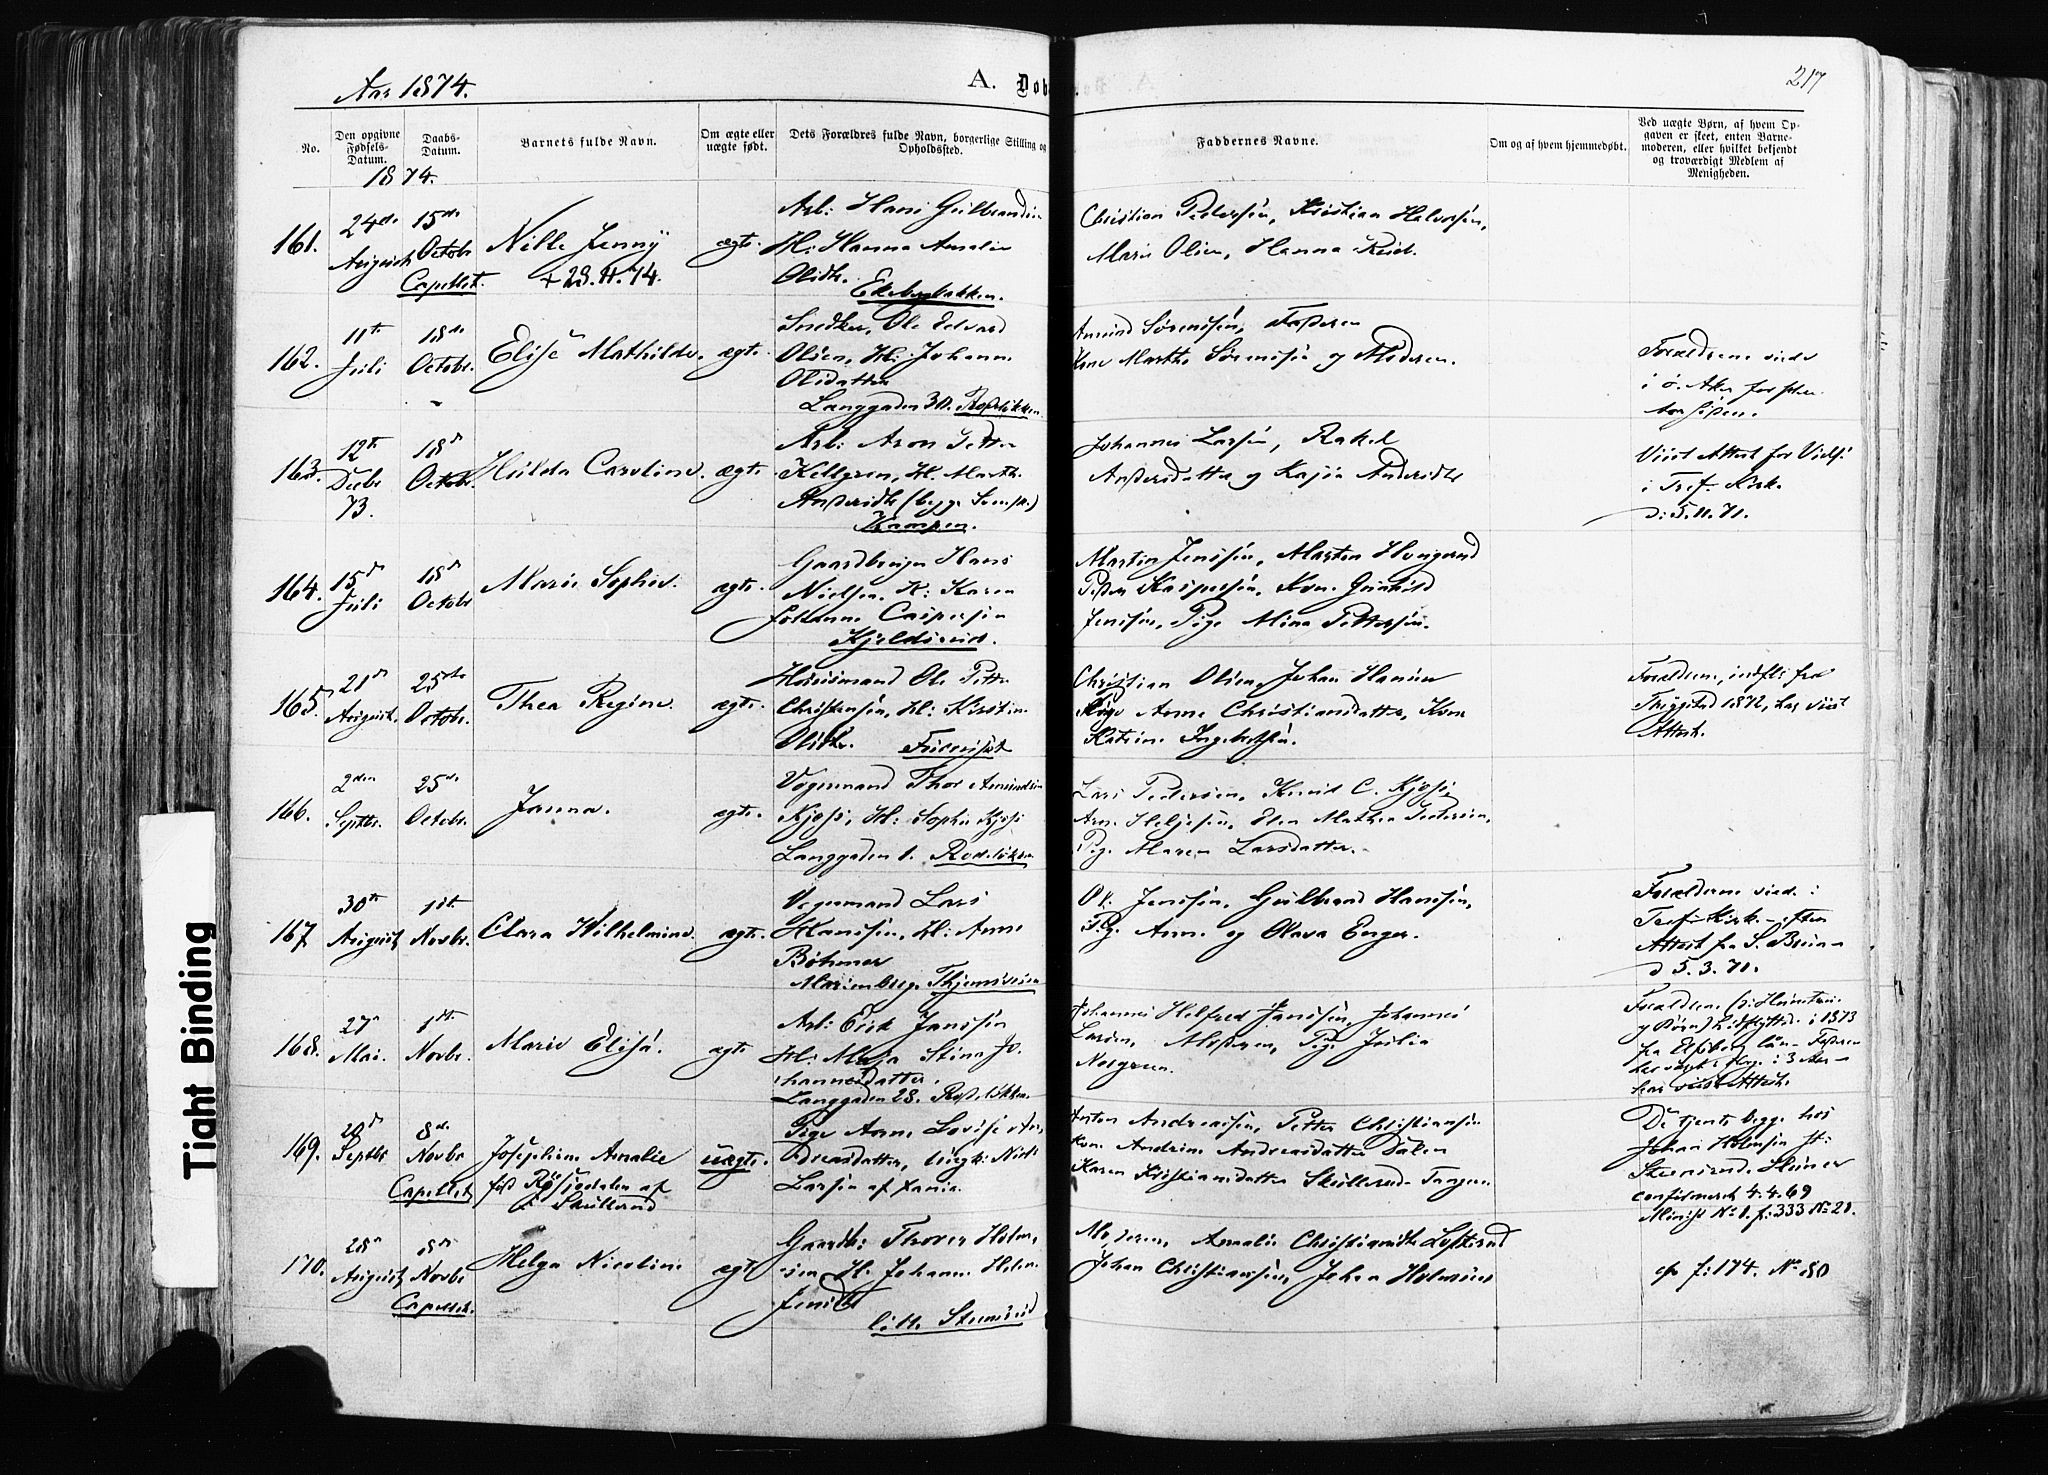 Aar 1874.
A. Døb
217
No.
Den opgivne Fødsels-Datum.
Daabs-Datum.
Barnets fulde Navn.
Om ægte eller uægte født.
Dets Forældres fulde Navn, borgerlige Stilling og Opholdssted.
Faddernes Navne.
Om og af hvem hjemmedøbt.
Ved uægte Børn, af hvem Opgaven er skeet, enten Barnemoderen, eller hvilket bekjendt og troværdigt Medlem af Menigheden.
1874.
161.
24de August
15de Octobr
Capellet.
Nille Jenny
+ 28.11.74.
ægte.
Arb: Hans Gulbrandsen
H: Hanna Amalie
Olsdtr.
Ekebergbakken.
Christian Pedersen, Kristian Halvorsen,
Marie Olsen, Hanna Ruud.
162.
11te Juli
18de Octobr.
Elise Mathilde.
ægte.
Snedker, Ole Edvard
Olsen, H: Johanne
Olsdatter
Langgaden 30. Rodeløkken.
Amund Sørensen, Faderen
Kone Marthe Sørensen og Moderen.
Forældrene viede
i ø. Aker
163.
12te Decbr 73.
18d Octobr.
Hilda Caroline.
ægte.
Arb: Aron Petter
Kellgren, H. Marthe
Andersdtr (begge Svenske)
Kampen.
Johannes Larsen, Rakel
Andersdatter og Kajsa Andersdtr
Viist Attest for Vielse
i Tref. Kirke
d: 5.11.71.
164.
15d Juli
18d Octobr
Marie Sophie.
ægte.
Gaardbruger Hans
Nielsen, H: Karen
Johanne Caspersen
Kjeldsrud.
Martin Jensen, Marten Haugerud
Peder Kaspersen, Kone Gunhild
Jensen, Pige Mina Pettersen.
165.
21d August.
25de Octobr.
Thea Regine.
ægte.
Huusmand Ole Petter
Christensen, H: Kirstine
Olsdtr.
Christian Olsen, Johan Hansen
Pige Anne Christiansdatter, Kone
Katrine Ingebretsen.
Forældrene, indfl: fra
Trøgstad 1872, har viist
Attest.
166.
2den Septbr.
25de Octobr.
Janna.
ægte.
Vognmand Thor Amundsen
Kjøsø, H: Sophie Kjøsø
Langgaden 1. Rodeløkken
Lars Pedersen, Knud C. Kjøsø,
Arne Heljesen, Elen Mathea Pedersen,
Pige Maren Larsdatter.
167
30te August
1ste Novbr.
Clara Wilhelmine.
ægte.
Vognmand Lars
Hansen, H: Anne
Böhmer
Marienberg, Thjemsveien
Ol: Jensen, Gulbrand Hansen,
Pig. Anne og Olava Enger.
Forældrene viede i
Tref. Kirke – efter
Attest fra S. Bruun –
d 5.3.71.
168.
27d Mai.
1ste Novbr.
Marie Elise.
ægte
Arb: Erik Jansen
H: Maja Stina Jo-
hannesdatter.
Langgaden 28. Rodeløkken.
Johannes Helfred Jansen, Johannes
Larsen, Moderen, Pige Julia
Norgren.
fra Elfsborg län – Faderen
har viist Attest.
169.
20d Septbr
8de Novbr
Capellet
Josephine Amalie
uægte.
Pige Anne Lovise An-
dreasdatter, Ungk: Niels
Larsen
Anton Andreassen, Petter Christiansen
Kone Andrine Andreasdatter Dalen
Karen Kristiansdatter Skullerud-Tangen
De tjente begge hos
Johan Holmsen
confirmeret 4.4.69
Minist No 1. f: 333 No 21.
170.
28d August
8de Novbr
Capellet.
Helga Nicoline
ægt
Gaardb: Thorer Holm-
sen H: Johanne Helene
Jensdtr
lille Steensrud
Moderen, Amalie Christiansdtr Lofsrud
Johan Christiansen, Johan Holmsen
f: 174. No 80
Tight Binding